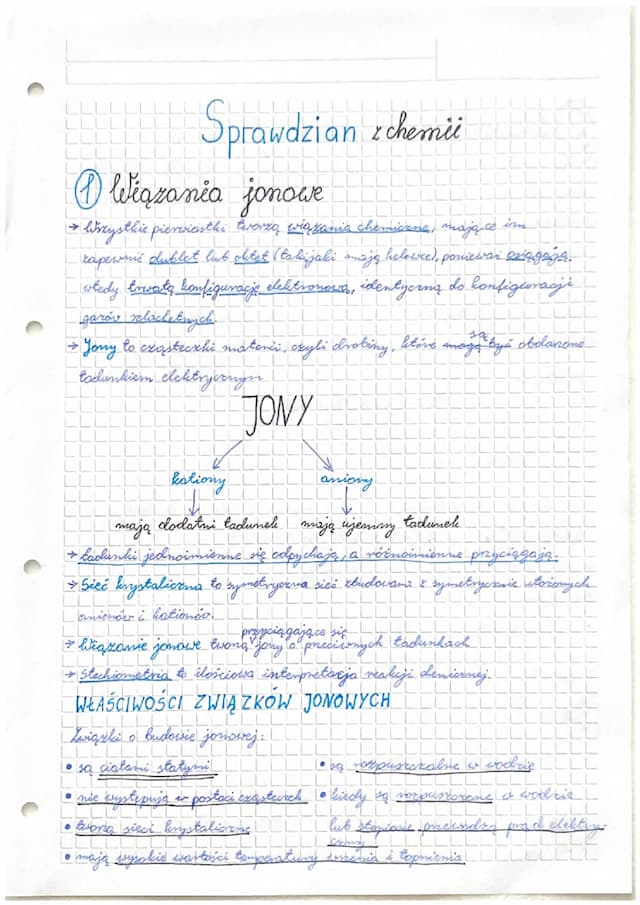 Sprawdzian z chemii
1 Wiązania jonowe
→ Wszystkie pierwiastki tworzą wiązania chemiczne, mające im
zapewnić dublet lub oktet (taki jaki mają helowce), ponieważ osiągają
wtedy trwałą konfigurację elektronową, identyczną do konfiguracji
gazów szlachetnych.
→ Jony to cząsteczki materii, czyli drobiny, które mogą być są obdarzone
ładunkiem elektrycznym
JONY
kationy aniony
mają dodatni ładunek mają ujemny ładunek
→ Ładunki jednoimienne się odpychają, a różnoimienne przyciągają.
→ Sieć krystaliczna to symetryczna sieć zbudowana z symetrycznie ułożonych
anionów i kationów.
przyciągające się
→ Wiązanie jonowe tworzą jony o przeciwnych ładunkach
→ Stechiometria to ilościowa interpretacja reakcji chemicznej.
WŁAŚCIWOŚCI ZWIĄZKÓW JONOWYCH
Związki o budowie jonowej:
• są ciałami stałymi • są rozpuszczalne w wodzie
• nie występują w postaci cząsteczek • kiedy są rozpuszczone w wodzie
• tworzą sieci krystaliczne lub stopione przewodzą prąd elektry-
czny
• mają wysokie wartości temperatury wrzenia i topnienia